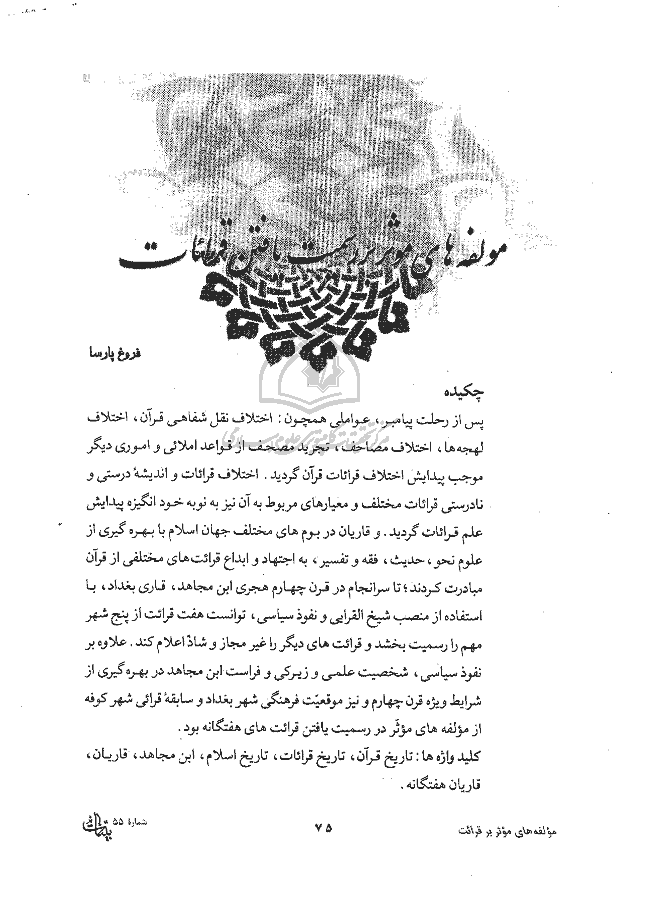 مولفه های موثر بر رسمیت یافتن قرائات
فروغ پارسا
چکیده
پس از رحلت پیامبر، عواملی همچون: اختلاف نقل شفاهی قرآن، اختلاف
لهجه‌ها، اختلاف مصاحف، تجرید مصحف از قواعد املائی و اموری دیگر
موجب پیدایش اختلاف قرائات قرآن گردید. اختلاف قرائات و اندیشۀ درستی و
نادرستی قرائات مختلف و معیارهای مربوط به آن نیز به نوبه خود انگیزه پیدایش
علم قرائات گردید. و قاریان در بوم های مختلف جهان اسلام با بهره گیری از
علوم نحو، حدیث، فقه و تفسیر، به اجتهاد و ابداع قرائت‌های مختلفی از قرآن
مبادرت کردند؛ تا سرانجام در قرن چهارم هجری ابن مجاهد، قاری بغداد، با
استفاده از منصب شیخ القرایی و نفوذ سیاسی، توانست هفت قرائت از پنج شهر
مهم را رسمیت بخشد و قرائت های دیگر را غیر مجاز و شاذّ اعلام کند. علاوه بر
نفوذ سیاسی، شخصیت علمی و زیرکی و فراست ابن مجاهد در بهره گیری از
شرایط ویژه قرن چهارم و نیز موقعیّت فرهنگی شهر بغداد و سابقۀ قرائی شهر کوفه
از مؤلفه های مؤثّر در رسمیت یافتن قرائت های هفتگانه بود.
کلید واژه ها: تاریخ قرآن، تاریخ قرائات، تاریخ اسلام، ابن مجاهد، قاریان،
قاریان هفتگانه.
مؤلفه‌های مؤثر بر قرائت
۷۵
شمارۀ ۵۵